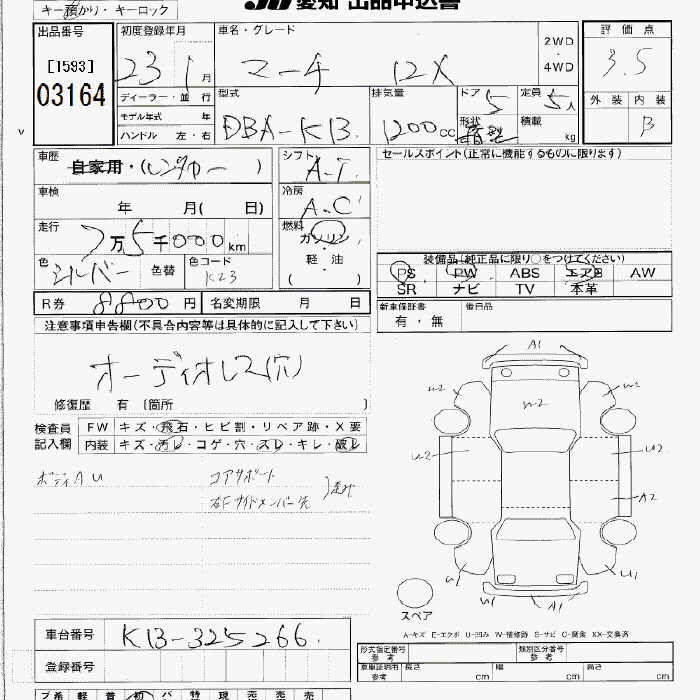 キー預かり・キーロック
愛知 出品申込書
出品番号
[1593]
03164
初度登録年月
23 1月
ディーラー・並行
モデル年式 年
ハンドル 左・右
車名・グレード
マーチ 12X
2WD
・
4WD
型式
DBA-K13
排気量
1200cc
ドア
5
定員
5人
形状
積載
kg
評価点
3.5
外装 内装
B
車歴
自家用・(レンタカー)
車検
年 月( 日)
走行
7万5千000km
色
シルバー
色替
色コード
K23
シフト
A.T.
冷房
A.C
燃料
ガソリン
・
軽・油
( )
セールスポイント(正常に機能するものに限ります)
装備品(純正品に限り○をつけてください)
PS PW ABS エアB AW
SR ナビ TV 本革
R券 8800円 名変期限 月 日
新車保証書
有・無
後日品
注意事項申告欄(不具合内容等は具体的に記入して下さい)
オーディオレス(穴)
修復歴 有 〔箇所 〕
検査員
記入欄
FW キズ・飛石・ヒビ割・リペア跡・X要
内装 キズ・汚レ・コゲ・穴・スレ・キレ・破レ
ボディAU
コアサポート
右Fサイドメンバー先
A1
U2 W2 W1
U2 U2
A2
U1 U1
W1 A1
スペア
A-キズ E-エクボ U-凹み W-補修跡 S-サビ C-腐食 XX-交換済
車台番号 K13-325266
登録番号
形式指定番号
参考
類別区分番号
参考
車庫証明用
参考
長さ cm 幅 cm 高さ cm